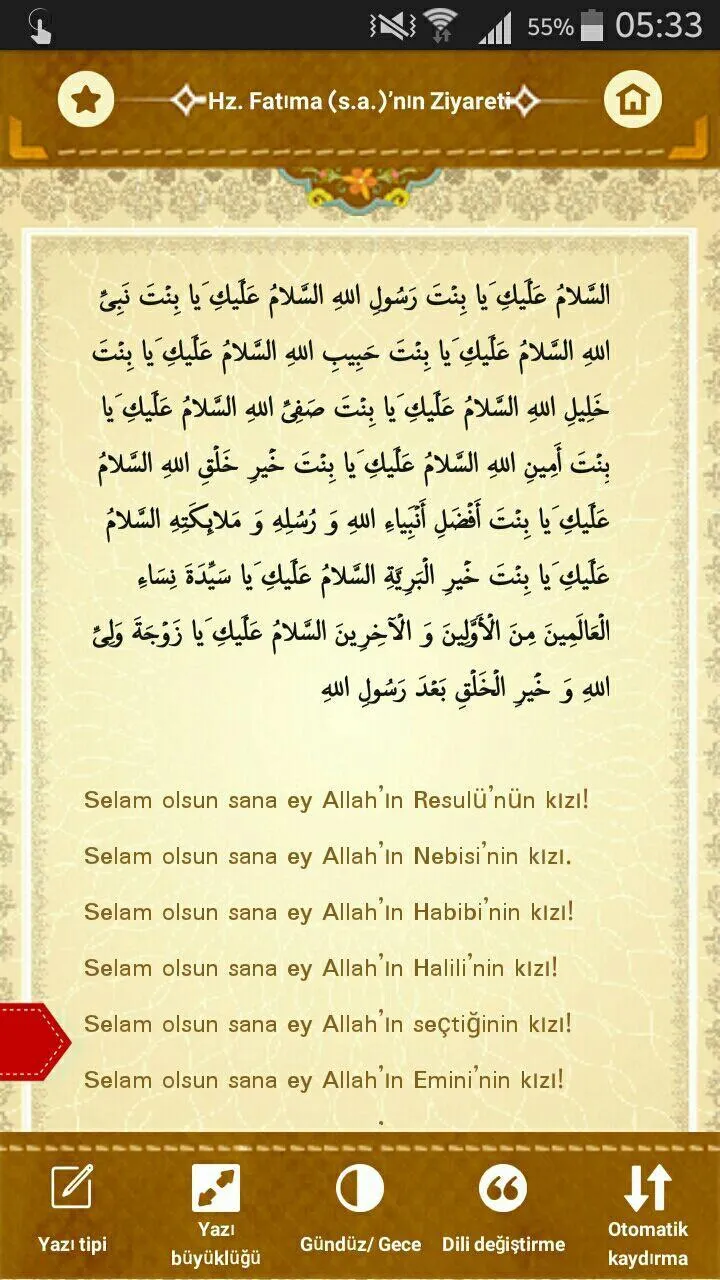 55% 05:33
Hz. Fatıma (s.a.)'nın Ziyareti
السَّلامُ عَلَيْكِ يَا بِنْتَ رَسُولِ اللهِ السَّلامُ عَلَيْكِ يَا بِنْتَ نَبِيِّ
اللهِ السَّلامُ عَلَيْكِ يَا بِنْتَ حَبِيبِ اللهِ السَّلامُ عَلَيْكِ يَا بِنْتَ
خَلِيلِ اللهِ السَّلامُ عَلَيْكِ يَا بِنْتَ صَفِيِّ اللهِ السَّلامُ عَلَيْكِ يَا
بِنْتَ أَمِينِ اللهِ السَّلامُ عَلَيْكِ يَا بِنْتَ خَيْرِ خَلْقِ اللهِ السَّلامُ
عَلَيْكِ يَا بِنْتَ أَفْضَلِ أَنْبِيَاءِ اللهِ وَ رُسُلِهِ وَ مَلائِكَتِهِ السَّلامُ
عَلَيْكِ يَا بِنْتَ خَيْرِ الْبَرِيَّةِ السَّلامُ عَلَيْكِ يَا سَيِّدَةَ نِسَاءِ
الْعَالَمِينَ مِنَ الْأَوَّلِينَ وَ الْآخِرِينَ السَّلامُ عَلَيْكِ يَا زَوْجَةَ وَلِيِّ
اللهِ وَ خَيْرِ الْخَلْقِ بَعْدَ رَسُولِ اللهِ
Selam olsun sana ey Allah'ın Resulü'nün kızı!
Selam olsun sana ey Allah'ın Nebisi'nin kızı.
Selam olsun sana ey Allah'ın Habibi'nin kızı!
Selam olsun sana ey Allah'ın Halili'nin kızı!
Selam olsun sana ey Allah'ın seçtiğinin kızı!
Selam olsun sana ey Allah'ın Emini'nin kızı!
Yazı tipi
Yazı büyüklüğü
Gündüz/ Gece
Dili değiştirme
Otomatik kaydırma